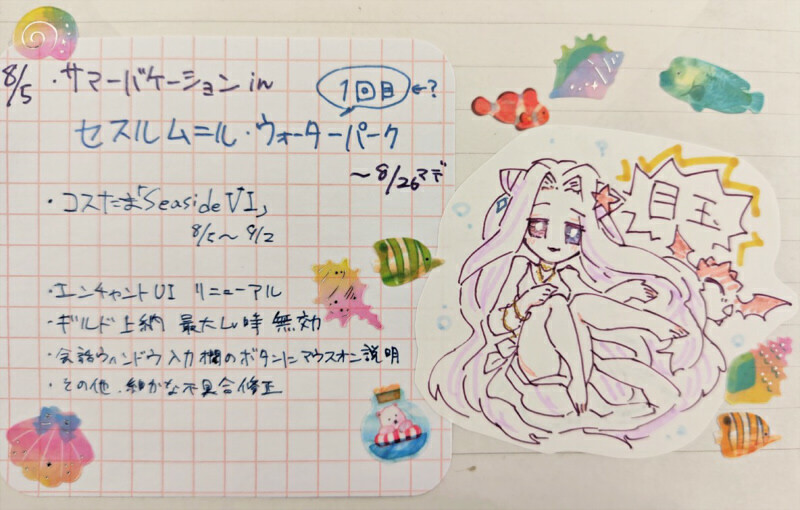 8/5 ・サマーバケーション in
1回目 ←?
セスルムニル・ウォーターパーク
～8/26マデ
・コスたま「Seaside VI」
8/5～9/2
・エンチャントUI リニューアル
・ギルド上納 最大Lv時 無効
・会話ウィンドウ入力欄のボタンにマウスオン説明
・その他、細かな不具合修正
目玉